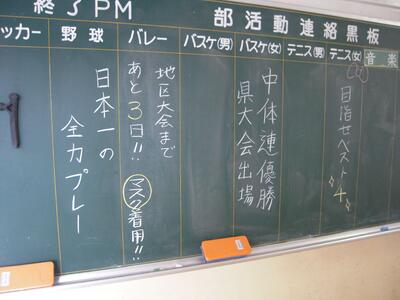 終了PM
部活動連絡黒板
ッカー
野球
バレー
バスケ(男)
バスケ(女)
テニス(男)
テニス(女)
音楽
日本一の
全力プレー
地区大会まで
あと3日!!
マスク着用!!
中体連優勝
県大会出場
目指せベスト4